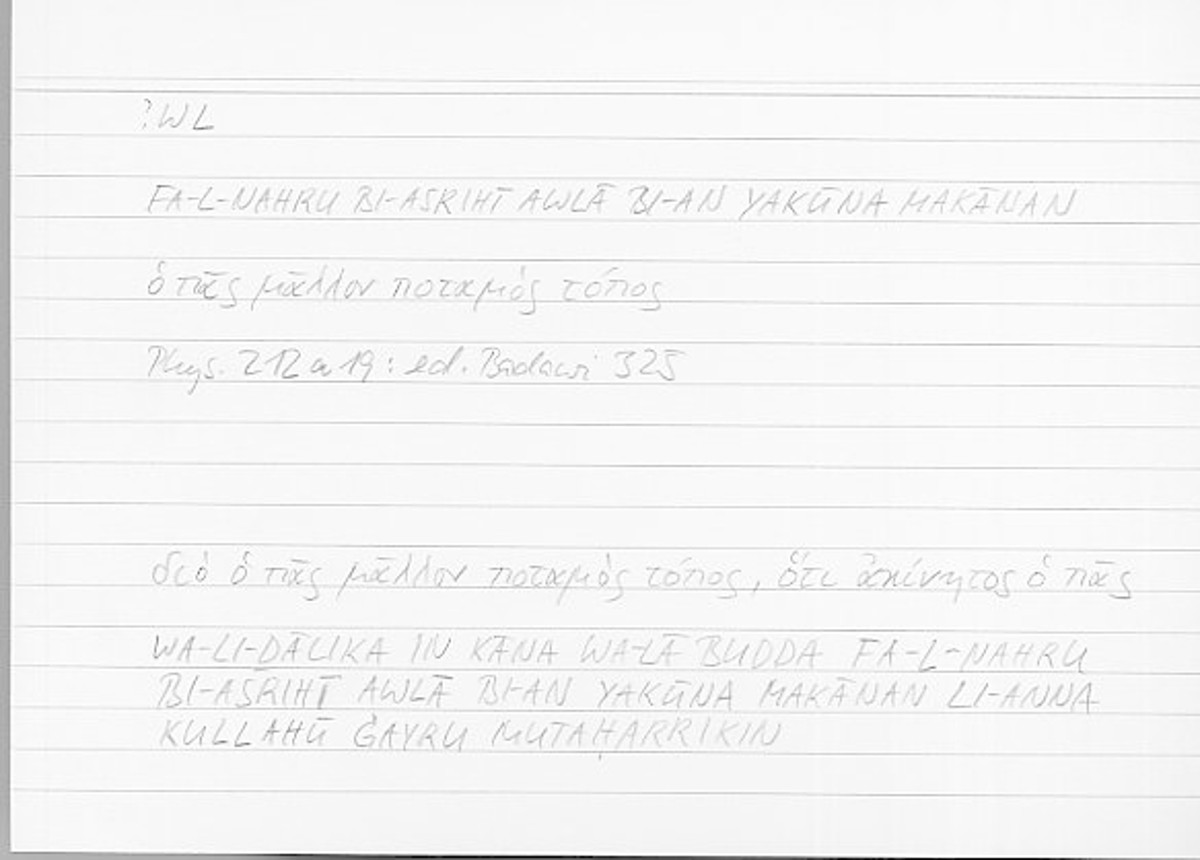 ʾWL
FA-L-NAHRU BI-ASRIHĪ AWLĀ BI-AN YAKŪNA MAKĀNAN
ὁ πᾶς μᾶλλον ποταμὸς τόπος
Phys. 212 a 19: ed. Badawi 325
διὸ ὁ πᾶς μᾶλλον ποταμὸς τόπος, ὅτι ἀκίνητος ὁ πᾶς
WA-LI-ḎĀLIKA IN KĀNA WA-LĀ BUDDA FA-L-NAHRU
BI-ASRIHĪ AWLĀ BI-AN YAKŪNA MAKĀNAN LI-ANNA
KULLAHŪ ĠAYRU MUTAḤARRIKIN